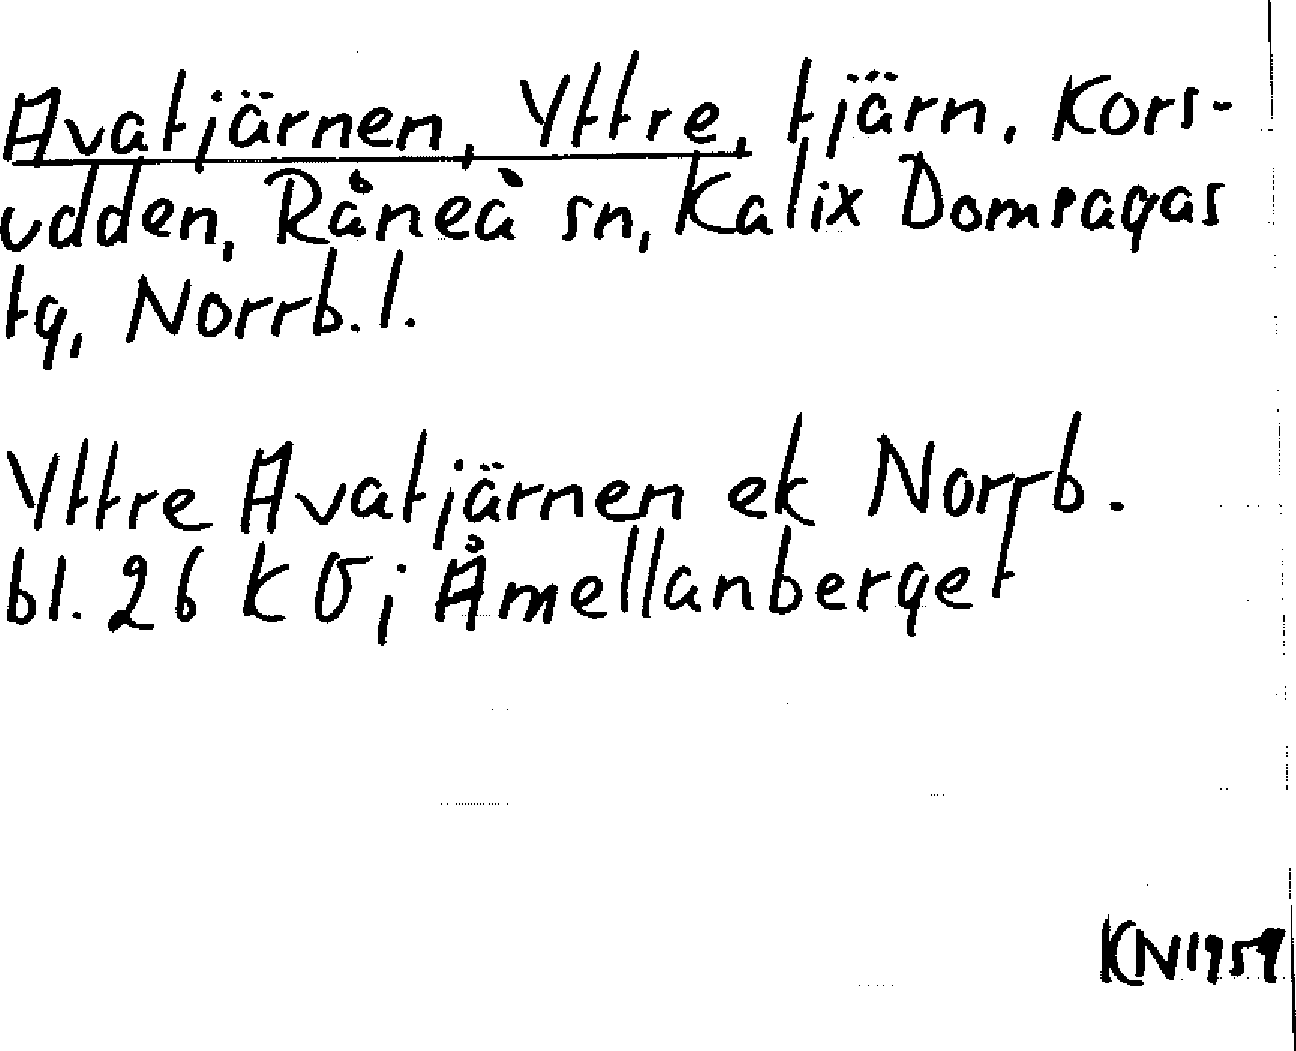 Avatjärnen, Yttre, tjärn. Kors-
udden, Råneå sn, Kalix Domsagas
tg, Norrb. l.
Yttre Avatjärnen ek Norrb.
bl. 26 KO; Åmellanberget
KN 1959